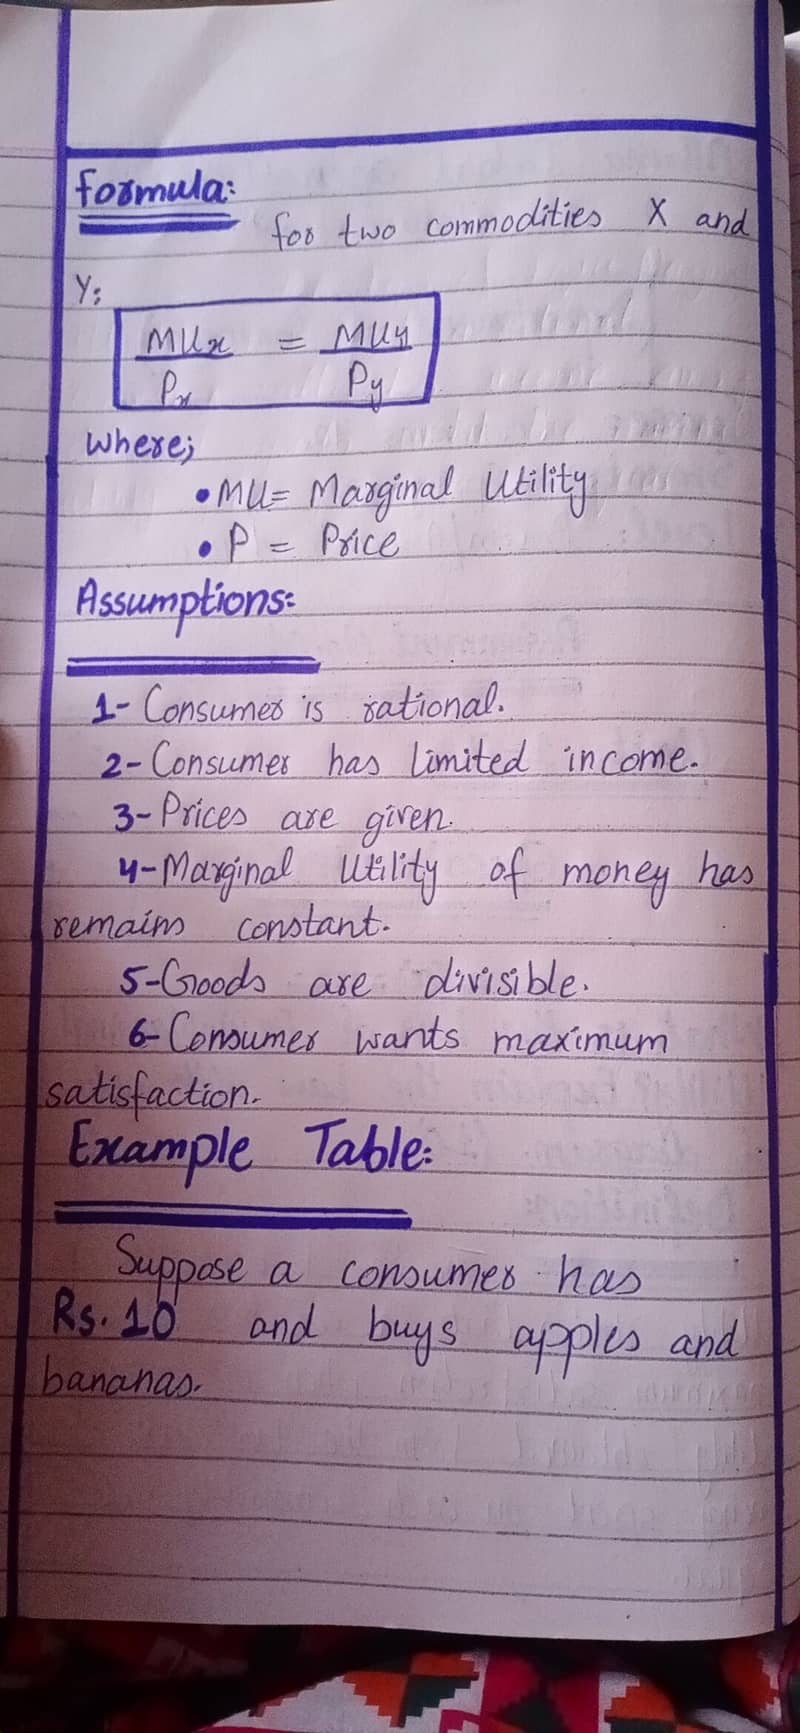 Formula:
for two commodities X and
Y:
MUx = MUy
Px Py
Where;
• MU = Marginal Utility
• P = Price
Assumptions:
1- Consumer is rational.
2- Consumer has limited income.
3- Prices are given.
4- Marginal Utility of money has
remains constant.
5- Goods are divisible.
6- Consumer wants maximum
satisfaction.
Example Table:
Suppose a consumer has
Rs. 10 and buys apples and
bananas.